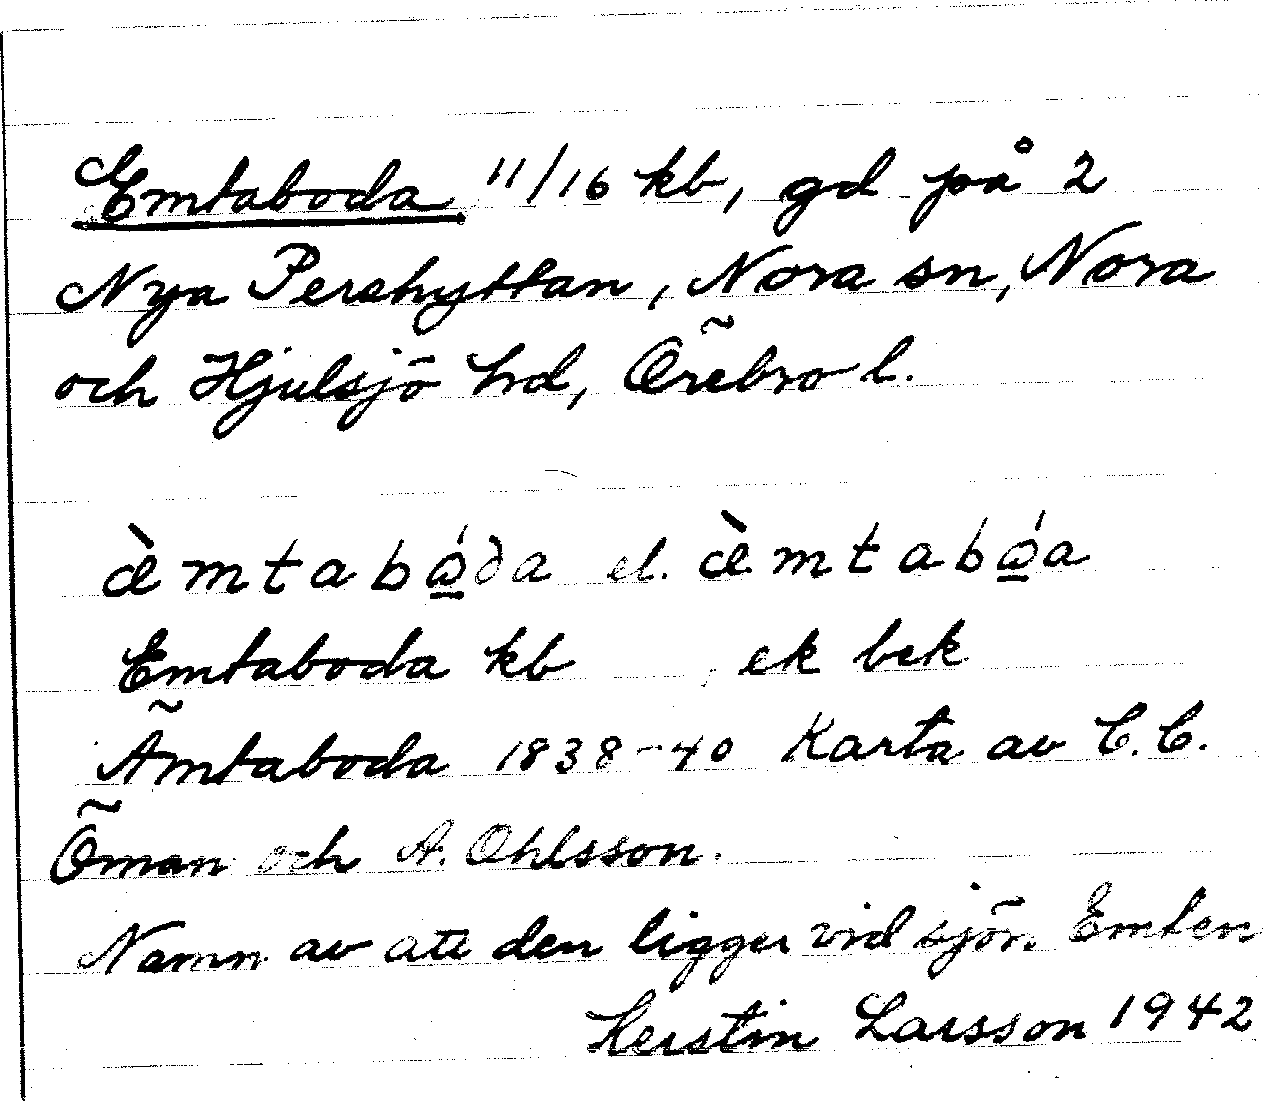 Emtaboda 11/16 kb, gd på 2
Nya Pershyttan, Nora sn, Nora
och Hjulsjö hrd, Örebro l.
æ̀mtabώ̲da el. æ̀mtabώ̲a
Emtaboda kb , ek bek
Ämtaboda 1838-40 Karta av C.C.
Öman och A. Ohlsson.
Namn av att den ligger vid sjön Emten
Kerstin Larsson 1942